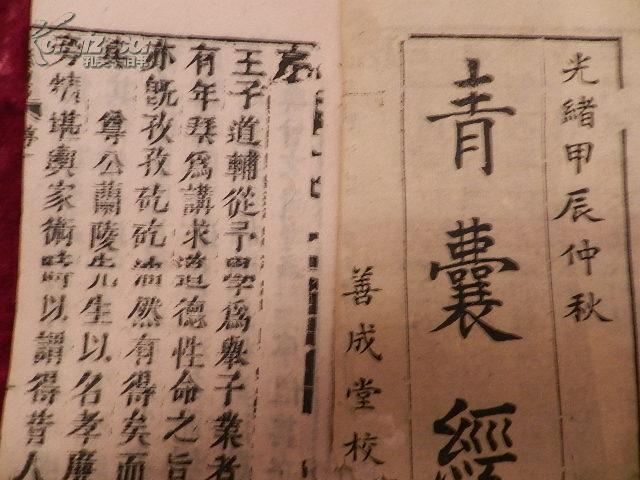 光緒甲辰仲秋
青囊經
善成堂校
序
王子道輔從予學爲舉子業者
有年琹爲講求道德性命之旨
亦既孜孜矻矻沛然有得矣而
尊公蘭陵先生以名孝廉
旁精堪輿家術時以謂得昔人